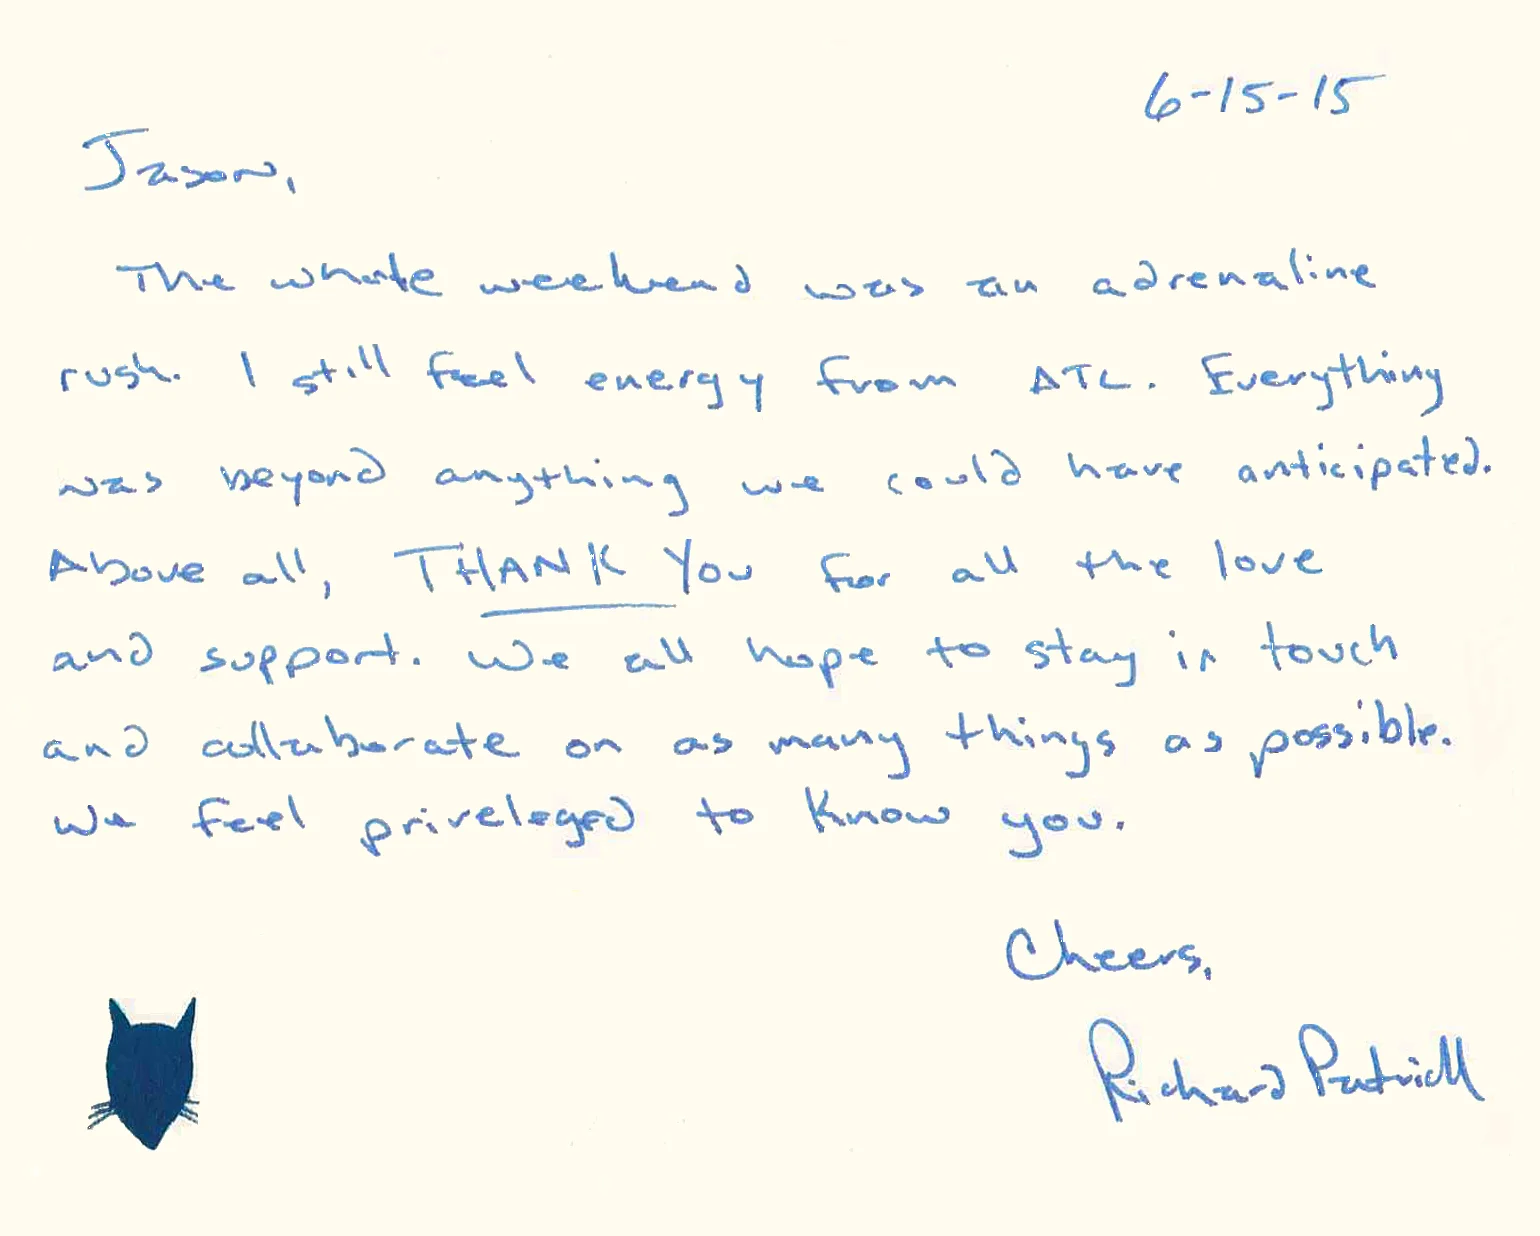 6-15-15
Jason,
The whole weekend was an adrenaline
rush. I still feel energy from ATL. Everything
was beyond anything we could have anticipated.
Above all, THANK You for all the love
and support. We all hope to stay in touch
and collaborate on as many things as possible.
We feel priveleged to know you.
Cheers,
Richard Patrick